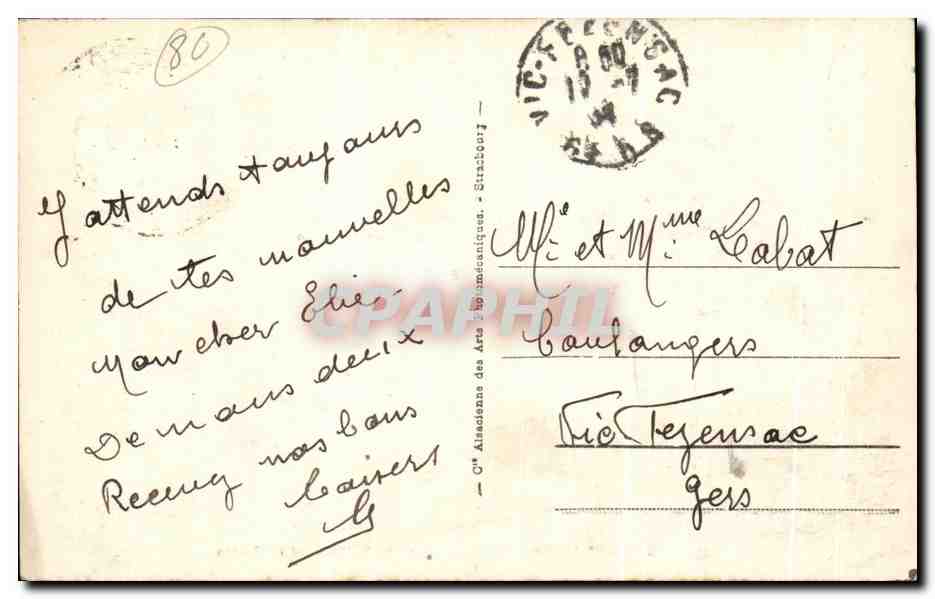 80
J'attends toujours
de tes nouvelles
Mon cher
De nous deux
Recevez nos bons
baisers
VIC-FEZENSAC
Cie Alsacienne des Arts Photomécaniques. - Strasbourg
Mr et Mme Labat
boulangers
Vic Fezensac
Gers
CPAPHIL